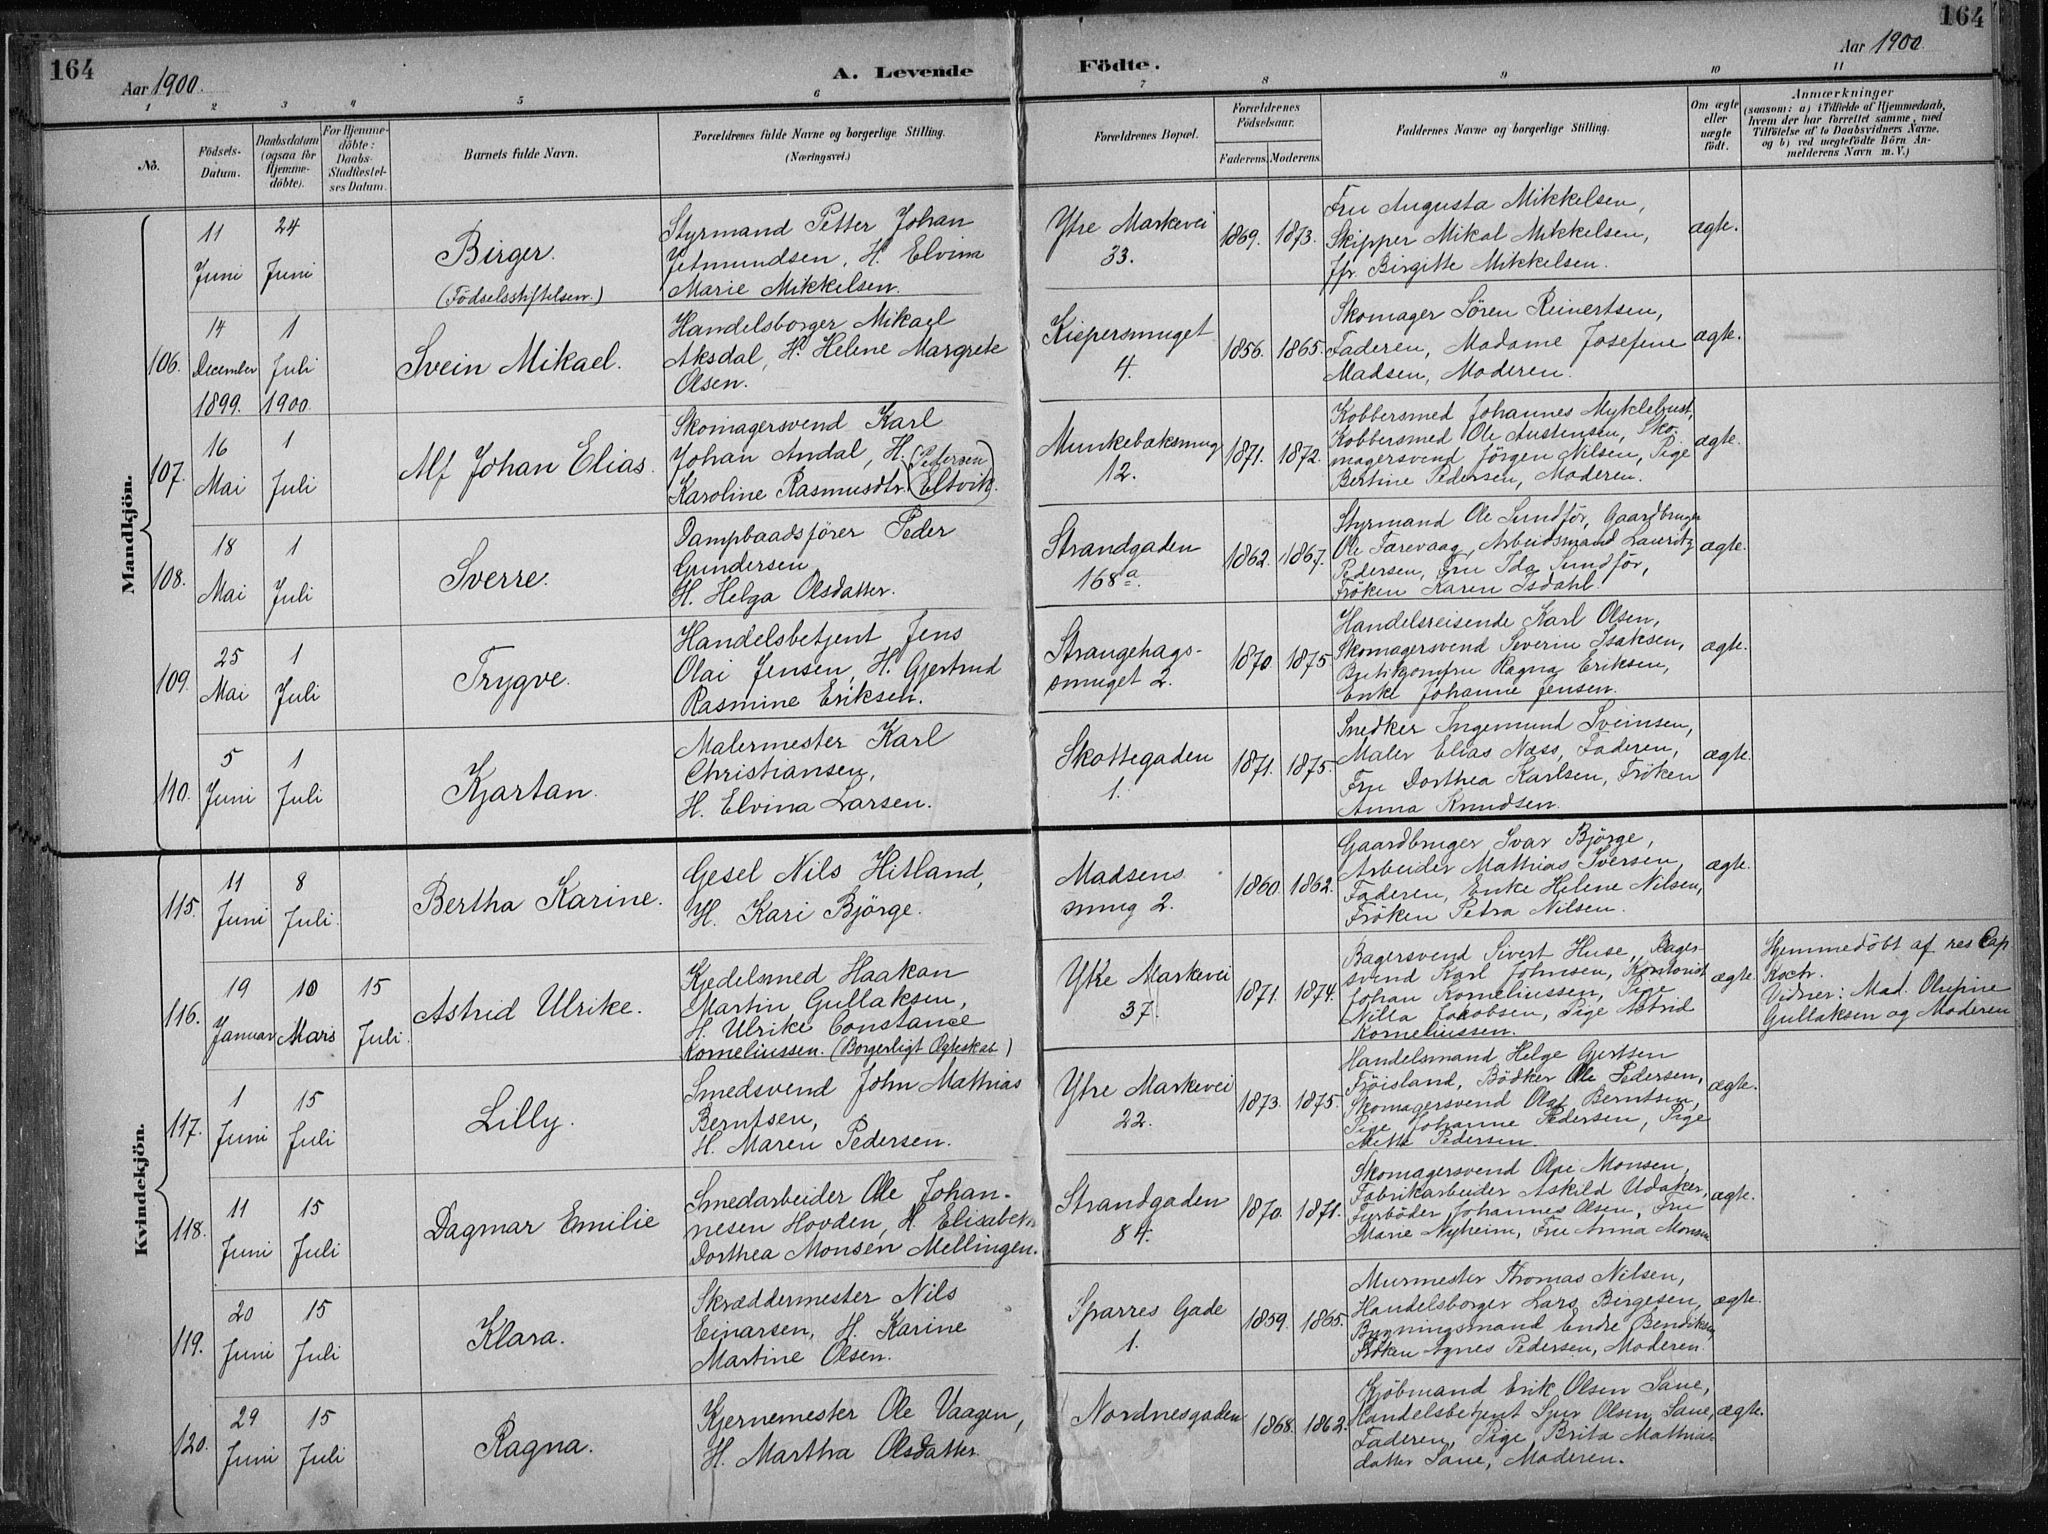 164
Aar 1900.
A. Levende
Födte.
Aar 1900.
164
1 2 3 4 5 6 7 8 9 10 11
No.
Födsels-Datum.
Daabsdatum (ogsaa for Hjemmedöbte).
For Hjemmedöbte: Daabs-Stadfæstelses Datum.
Barnets fulde Navn.
Forældrenes fulde Navne og borgerlige Stilling.
(Næringsvei.)
Forældrenes Bopæl.
Forældrenes Födselsaar.
Faderens. Moderens.
Faddernes Navne og borgerlige Stilling.
Om ægte eller uægte födt.
Anmærkninger
(saasom: a) i Tilfælde af Hjemmedaab, hvem der har forrettet samme, med Tilföielse af to Daabsvidners Navne, og b) ved uægtefödte Börn Anmelderens Navn m. V.)
Mandkjön.
11 Juni
24 Juni
Birger.
(Födselsstiftelsen.)
Styrmand Petter Johan
Jetmundsen, H. Elvina
Marie Mikkelsen.
Ytre Markevei
33.
1869. 1873.
Fru Augusta Mikkelsen,
Skipper Mikal Mikkelsen,
Jfr. Birgitte Mikkelsen.
ægte.
106.
14 December 1899.
1 Juli 1900.
Svein Mikael.
Handelsborger Mikael
Aksdal, H. Helene Margrete
Olsen.
Kippersmuget
4.
1856. 1865.
Skomager Sören Reinertsen,
Faderen, Madame Josefine
Madsen, Moderen.
ægte.
107.
16 Mai
1 Juli
Alf Johan Elias.
Skomagersvend Karl
Johan Andal, H.
Karoline Rasmusdtr. (Pedersen Eltvik.)
Munkebæksmug
12.
1871. 1872.
Kobbersmed Johannes Myklebust,
Kobbersmed Ole Austensen, Sko-
magersvend Jörgen Nilsen, Pige
Bertine Pedersen, Moderen.
ægte.
108.
18 Mai
1 Juli
Sverre.
Dampbaadsförer Peder
Gundersen
H. Helga Olsdatter.
Strandgaden
168a.
1862. 1867.
Styrmand Ole Sundför, Gaardbruger
Ole Farevaag, Arbeidsmand Lauritz
Pedersen, Fru Ida Sundför,
Fröken Karen Isdahl.
ægte.
109.
25 Mai
1 Juli
Trygve.
Handelsbetjent Jens
Olai Jensen, H. Gjertrud
Rasmine Eriksen.
Strangehags-
smuget 2.
1870. 1875
Handelsreisende Karl Olsen,
Skomagersvend Severin Isaksen,
Butikjomfru Ragna Eriksen,
Enke Johanne Jensen.
ægte.
110.
5 Juni
1 Juli
Kjartan.
Malermester Karl
Christiansen,
H. Elvina Larsen.
Skottegaden
1.
1871. 1875.
Snedker Ingemund Sveinsen,
Maler Elias Næss, Faderen,
Fru Dorthea Karlsen, Fröken
Anna Knudsen.
ægte.
Kvindekjön.
115.
11 Juni
8 Juli.
Bertha Karine.
Gesel Nils Hitland,
H. Kari Björge.
Madsens
smug 2.
1860. 1862.
Gaardbruger Ivar Björge,
Arbeider Mathias Iversen,
Faderen, Enke Helene Nilsen,
Fröken Petra Nilsen.
ægte.
116.
19 Januar
10 Mars
15 Juli.
Astrid Ulrike.
Kjedelsmed Haakon
Martin Gullaksen,
H. Ulrike Constance
Korneliussen. (Borgerligt Ægteskab)
Ytre Markevei
37.
1871. 1874.
Bagersvend Sivert Huse, Bager-
svend Karl Johnsen, Kontorist
Johan Korneliussen, Pige
Nilla Jakobsen, Pige Astrid
Korneliussen.
ægte.
Hjemmedöbt af res Cap
Koch.
Vidner: Mad. Olufine
Gullaksen og Moderen
117.
1 Juni
15 Juli
Lilly.
Smedsvend John Mathias
Berntsen,
H. Maren Pedersen.
Ytre Markevei
22.
1873. 1875.
Handelsmand Helge Gjertsen
Fröisland, Bödker Ole Pedersen,
Skomagersvend Olaf Berntsen,
Pige Johanne Pedersen, Pige
Mette Pedersen.
ægte.
118.
11 Juni
15 Juli
Dagmar Emilie
Smedarbeider Ole Johan-
nesen Hovden, H. Elisabeth
Dorthea Monsen Mellingen.
Strandgaden
84.
1870. 1871.
Skomagersvend Olai Monsen,
Fabrikarbeider Askild Udaker,
Fyrböder Johannes Olsen, Fru
Marie Nyheim, Fru Anna Monsen
ægte.
119.
20 Juni
15 Juli
Klara.
Skræddermester Nils
Einarsen, H. Karine
Martine Olsen.
Sparres Gade
1.
1859. 1865.
Murmester Thomas Nilsen,
Handelsborger Lars Birgesen,
Bygningsmand Endre Bendiksen
Fröken Agnes Pedersen, Moderen.
ægte.
120.
29 Juni
15 Juli
Ragna.
Kjernemester Ole Vaagen,
H. Martha Olsdatter.
Nordnesgaden
1868. 1862.
Kjöbmand Erik Olsen Sane,
Handelsbetjent Sjur Olsen Sane,
Faderen, Pige Brita Mathias-
datter Sane, Moderen.
ægte.